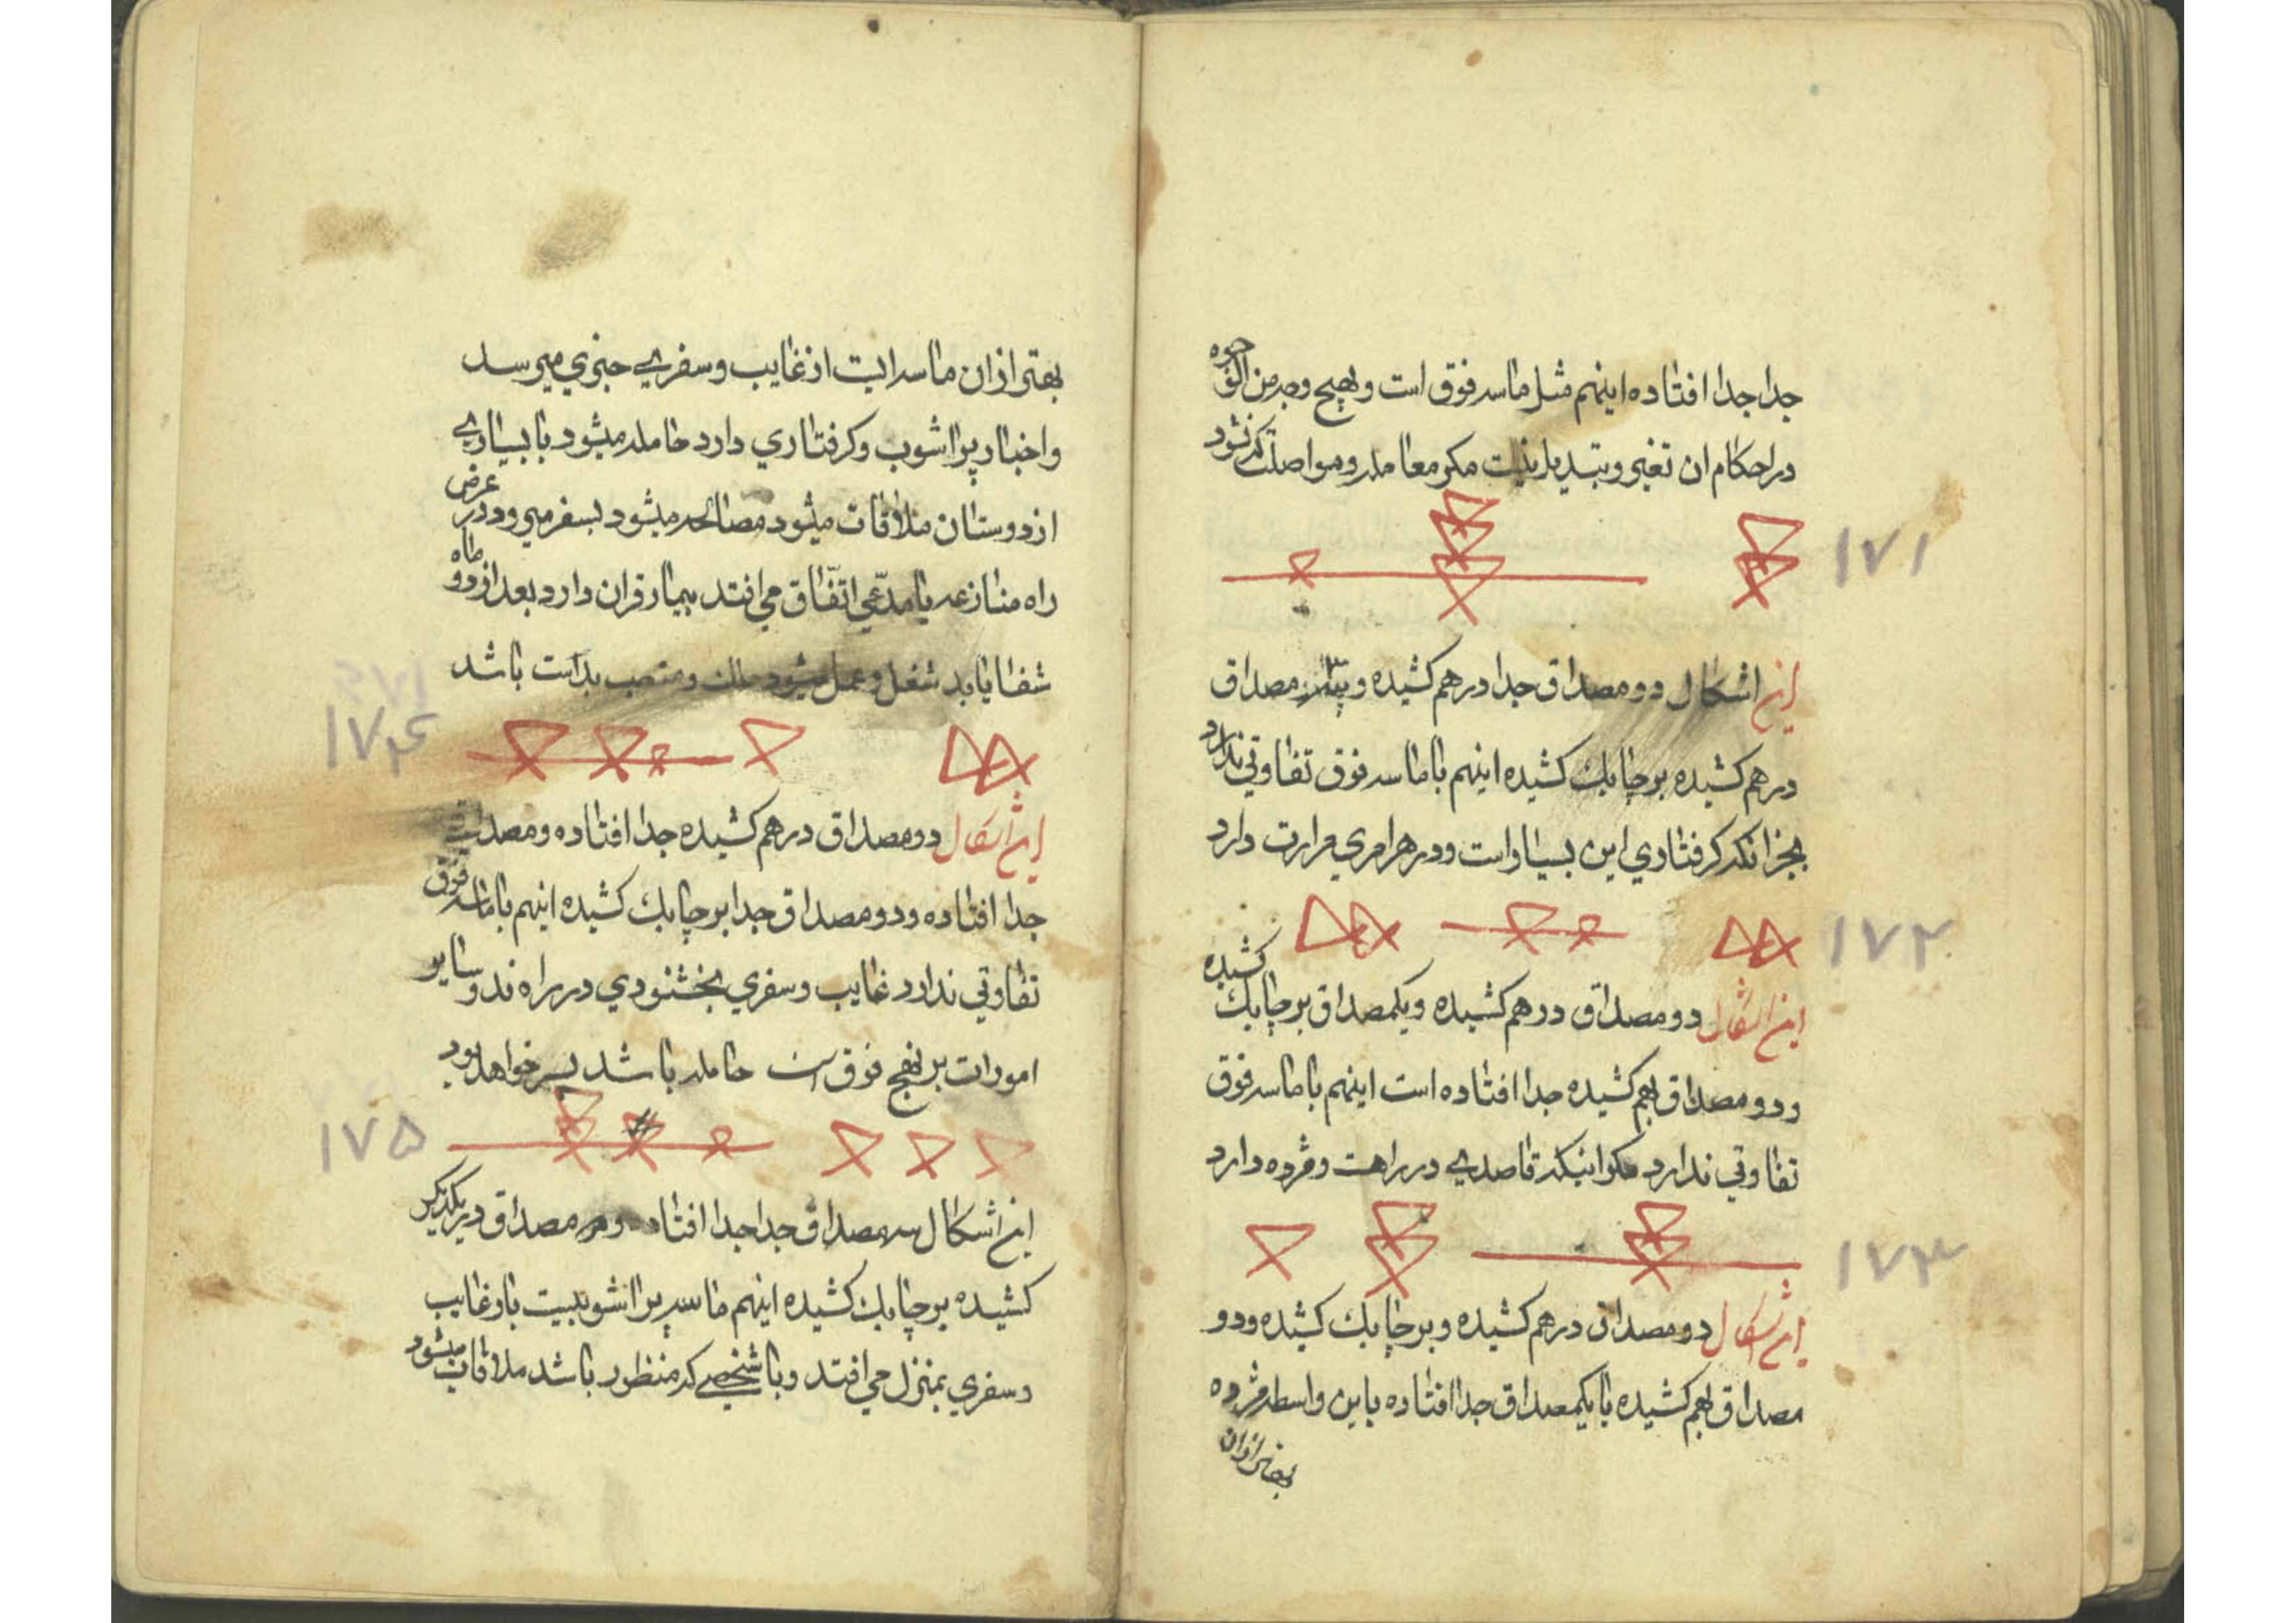 جدا جدا افتاده اینهم مثل ماسه فوق است و بهیچ وجه من الوجوه
در احکام ان تغیر و تبدیل نیست مکر معامله و مواصلت که نشود
۱۷۱
این اشکال دو مصداق جدا درهم کشیده و مصداق
درهم کشیده بر چابک کشیده اینهم با ماسه فوق تفاوتی ندارد
بجز انکه کرفتاری این بسیار است و در هر امری مرارت دارد
۱۷۲
این اشکال دو مصداق درهم کشیده و یکمصداق بر چابک کشیده
و دو مصداق بهم کشیده جدا افتاده است اینهم با ماسه فوق
تفاوتی ندارد مکر اینکه قاصدی در راهست و مژده دارد
۱۷۳
این اشکال دو مصداق درهم کشیده و بر چابک کشیده و دو
مصداق بهم کشیده با یکمصداق جدا افتاده باین واسطه مژده
بهتر از ان
بهتر از ان ماسه ایت از غایب و سفری خبری میرسد
و اخبار پر اشوب و کرفتاری دارد حامله میشود با بسیاری
از دوستان ملاقات میشود مصالحه میشود بسفر میرود در عرض
راه منازعه با مدّعی اتّفاق می افتد بیمار قران دارد بعد از دو ماه
شفا یابد شغل و عمل میشود ملک و منصب بدست باشد
۱۷۴
این اشکال دو مصداق درهم کشیده جدا افتاده و مصداقی
جدا افتاده و دو مصداق جدا بر چابک کشیده اینهم با ماسه فوق
تفاوتی ندارد غایب و سفری بخشنودی در راه ند و سایر
امورات بر نهج فوق است حامله باشد پسر خواهد بود
۱۷۵
این اشکال سه مصداق جدا جدا افتاده و هر مصداق در یکدیکر
کشیده بر چابک کشیده اینهم ماسه پر اشوبیست با و غایب
و سفری بمنزل می افتد و با شخصی که منظور باشد ملاقات میشود